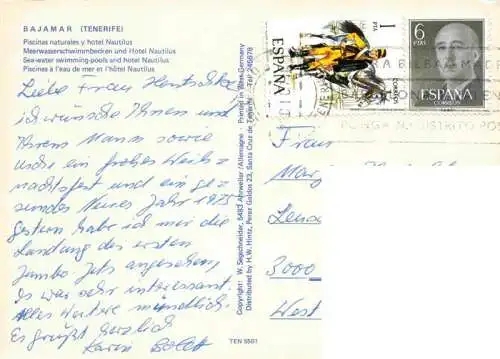 BAJAMAR (TENERIFE)
Piscinas naturales y hotel Nautilus
Meerwasserschwimmbecken und Hotel Nautilus
Sea-water swimming-pools and hotel Nautilus
Piscines à l'eau de mer et l'hôtel Nautilus
Liebe Frau
ich wünsche Ihnen und
Ihrem Mann sowie
ein frohes Weih-
nachtsfest und ein ge-
sundes Neues Jahr 1975
Gestern habe ich mir die
Landung des ersten
Jumbo Jets angesehen,
Es war sehr interessant.
Alles weitere mündlich.
Es grüßt herzlich
Karin
Copyright: W. Segschneider, 5483 Ahrweiler/Allemagne · Printed in West-Germany
Distributed by H.W. Hintz, Perez Galdos 23, Santa Cruz de Tenerife · Tel. 245878
TEN 5591
1
PTA
ESPAÑA
CORREOS
6
PTAS
ESPAÑA
CORREOS
PONGA DISTRITO POS
Frau
Marg
3000
West